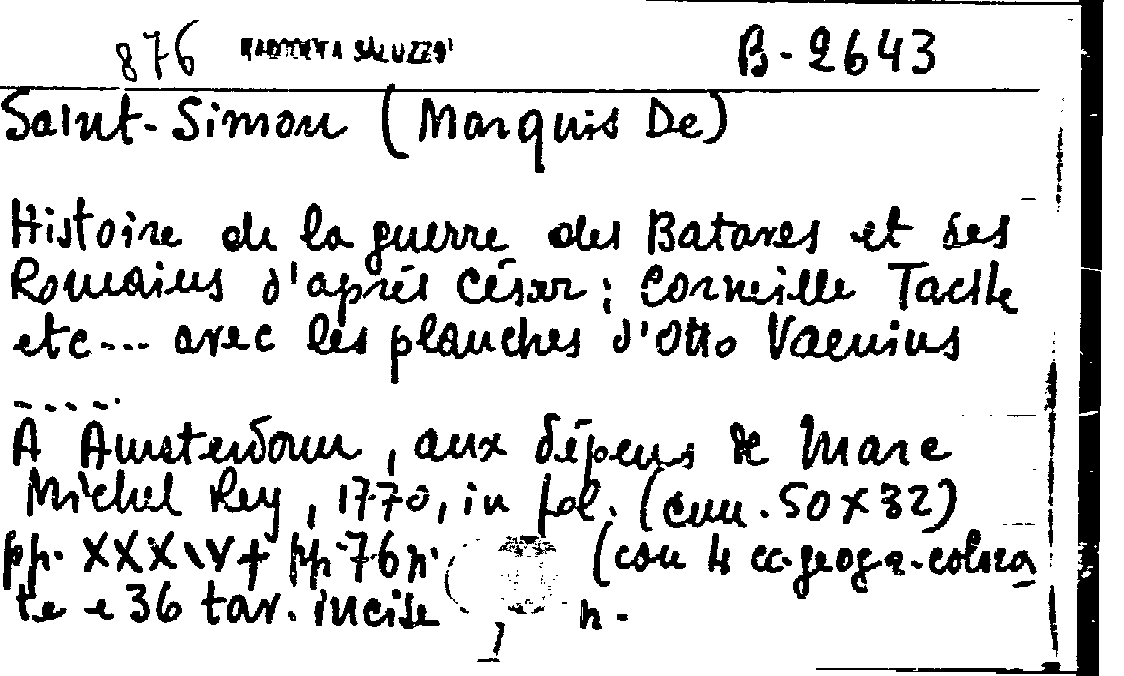 876 RACCOLTA SALUZZO B-2643
Saint-Simon (Marquis De)
Histoire de la guerre des Bataves et des
Romains d'après César; Corneille Tacite
etc... avec les planches d'Otto Vaenius
.....
A Amsterdam, aux dépens de Marc
Michel Rey, 1770, in fol. (cm. 50x32)
pp. XXXIV + pp. 76 n. (con 4 cc. geogr. colora
te e 36 tav. incise n.